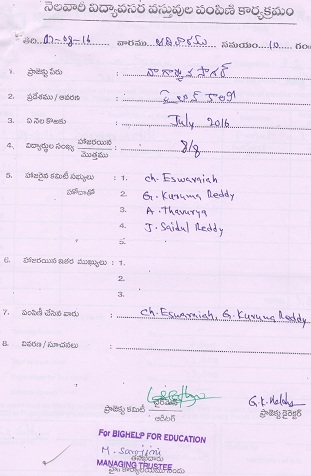 నెలవారీ విద్యావసర వస్తువుల పంపిణీ కార్యక్రమం
తేది. 07-08-16 వారము ఆదివారము సమయం 10 గం
1. ప్రాజెక్టు పేరు : నాగార్జున సాగర్
2. ప్రదేశము / ఆవరణ : పైలాన్ కాలనీ
3. ఏ నెల కొఱకు : July 2016
4. విద్యార్ధుల సంఖ్య హాజరయిన / మొత్తము : 8/8
5. హాజరైన కమిటీ సభ్యులు : 1. ch. Eswaraiah
హోదాతో 2. G. Kuruma Reddy
3. A. Thavurya
4. J. Saidul Reddy
5.
6. హాజరయిన ఇతర ముఖ్యులు : 1.
2.
3.
7. పంపిణీ చేసిన వారు : ch. Eswaraiah, G. Kuruma Reddy
8. వివరణ / సూచనలు :
ప్రాజెక్టు కమిటీ చైర్మన్
ఆడిటర్
ప్రాజెక్టు డైరెక్టర్
For BIGHELP FOR EDUCATION
M. Sarojini
MANAGING TRUSTEE